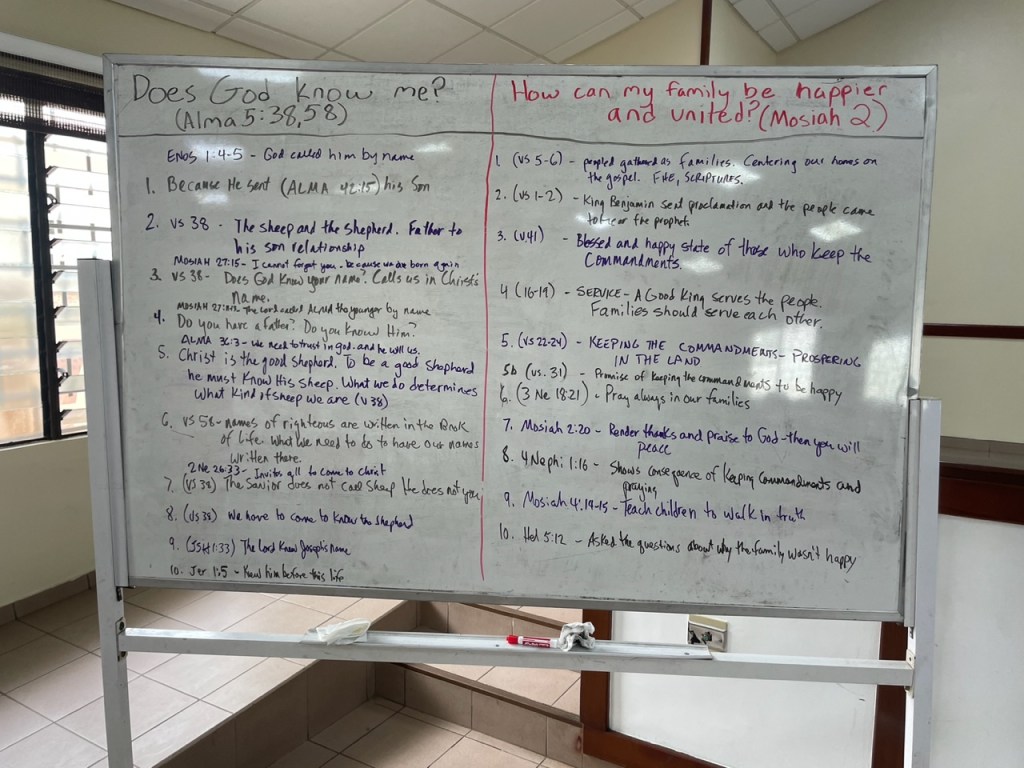 Does God know me?
(Alma 5:38,58)
ENOS 1:4-5 - God called him by name
1. Because He sent (ALMA 42:15) his Son
2. vs 38 - The sheep and the shepherd. Father to
his son relationship
MOSIAH 27:15 - I cannot forget you - because we are born again
3. vs 38 - Does God know your name? Calls us in Christ's
name.
The Lord called ALMA the younger by name
4. Do you have a Father? Do you know Him?
ALMA 36:3 - We need to trust in god and he will us.
5. Christ is the good Shepherd. To be a good shepherd
he must know His sheep. What we do determines
what kind of sheep we are (v 38)
6. vs 58 - names of righteous are written in the Book
of Life. What we need to do to have our names
written there.
2 Ne 26:33 - Invites all to come to Christ
7. (vs 38) The Savior does not call sheep He does not
8. (vs 38) We have to come to know the shepherd
9. (JSH 1:33) The Lord knew Joseph's name
10. Jer 1:5 - Knew him before this life
How can my family be happier
and united? (Mosiah 2)
1. (vs 5-6) - people gathered as families. Centering our homes on
the gospel. FHE, SCRIPTURES.
2. (vs 1-2) - King Benjamin sent proclamation and the people came
to hear the prophet.
3. (v.41) - Blessed and happy state of those who keep the
Commandments.
4 (16-19) - SERVICE - A Good King serves the people.
Families should serve each other.
5. (vs 22-24) - KEEPING THE COMMANDMENTS - PROSPERING
IN THE LAND
5b (vs. 31) - Promise of keeping the commandments to be happy
6. (3 Ne 18:21) - Pray always in our families
7. Mosiah 2:20 - Render thanks and praise to God - then you will
peace
8. 4 Nephi 1:16 - Shows consequence of keeping Commandments and
praying
9. Mosiah 4:14-15 - Teach children to walk in truth
10. Hel 5:12 - Asked the questions about why the family wasn't happy